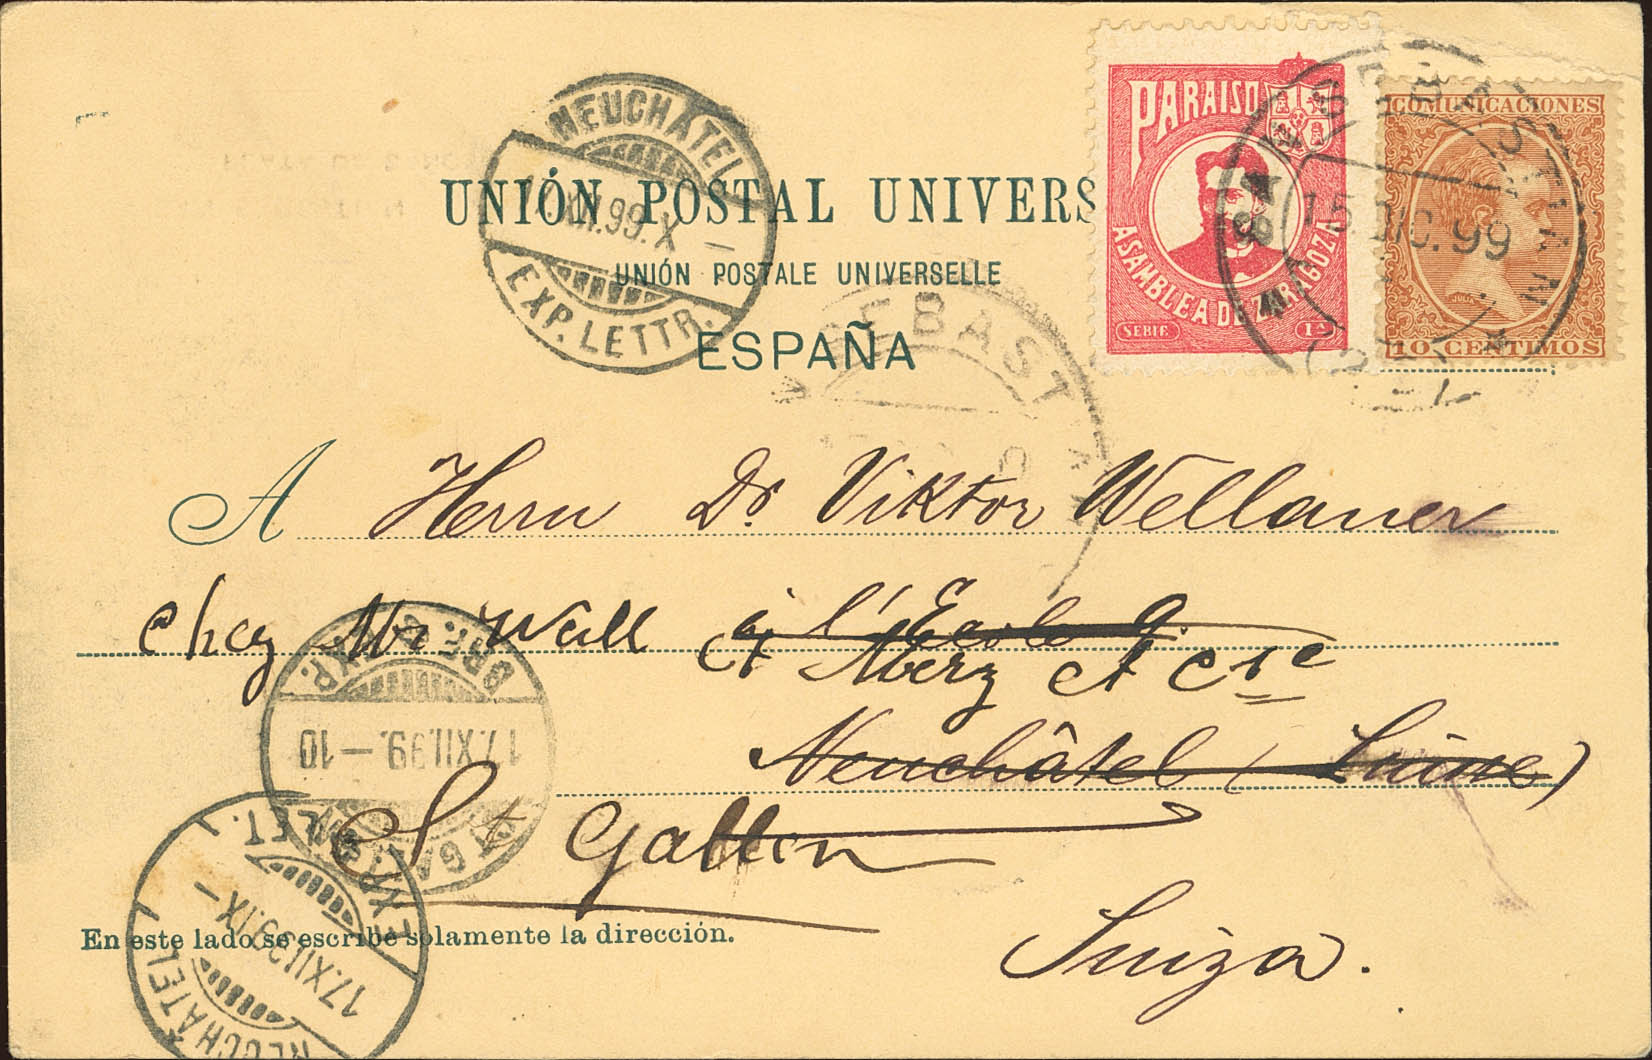 UNIÓN POSTAL UNIVERS
UNIÓN POSTALE UNIVERSELLE
ESPAÑA
NEUCHÂTEL
.XII.99.X –
EXP. LETTR.
PARAISO
ASAMBLEA DE ZARAGOZA
SERIE 1ª
COMUNICACIONES
10 CENTIMOS
SEBASTIAN
15 DIC. 99
SEBAST
A Herrn Dr. Viktor Wellauer
chez Mr Weill à l'Ecole
Merz et Cie
Neuchâtel (Suisse)
St Gallen
Suiza.
BRF. EXP.
17.XII.99.–10
ST GALLEN
EXP. LET.
17.XII.99.IX–
NEUCHATEL
En este lado se escribe solamente la dirección.